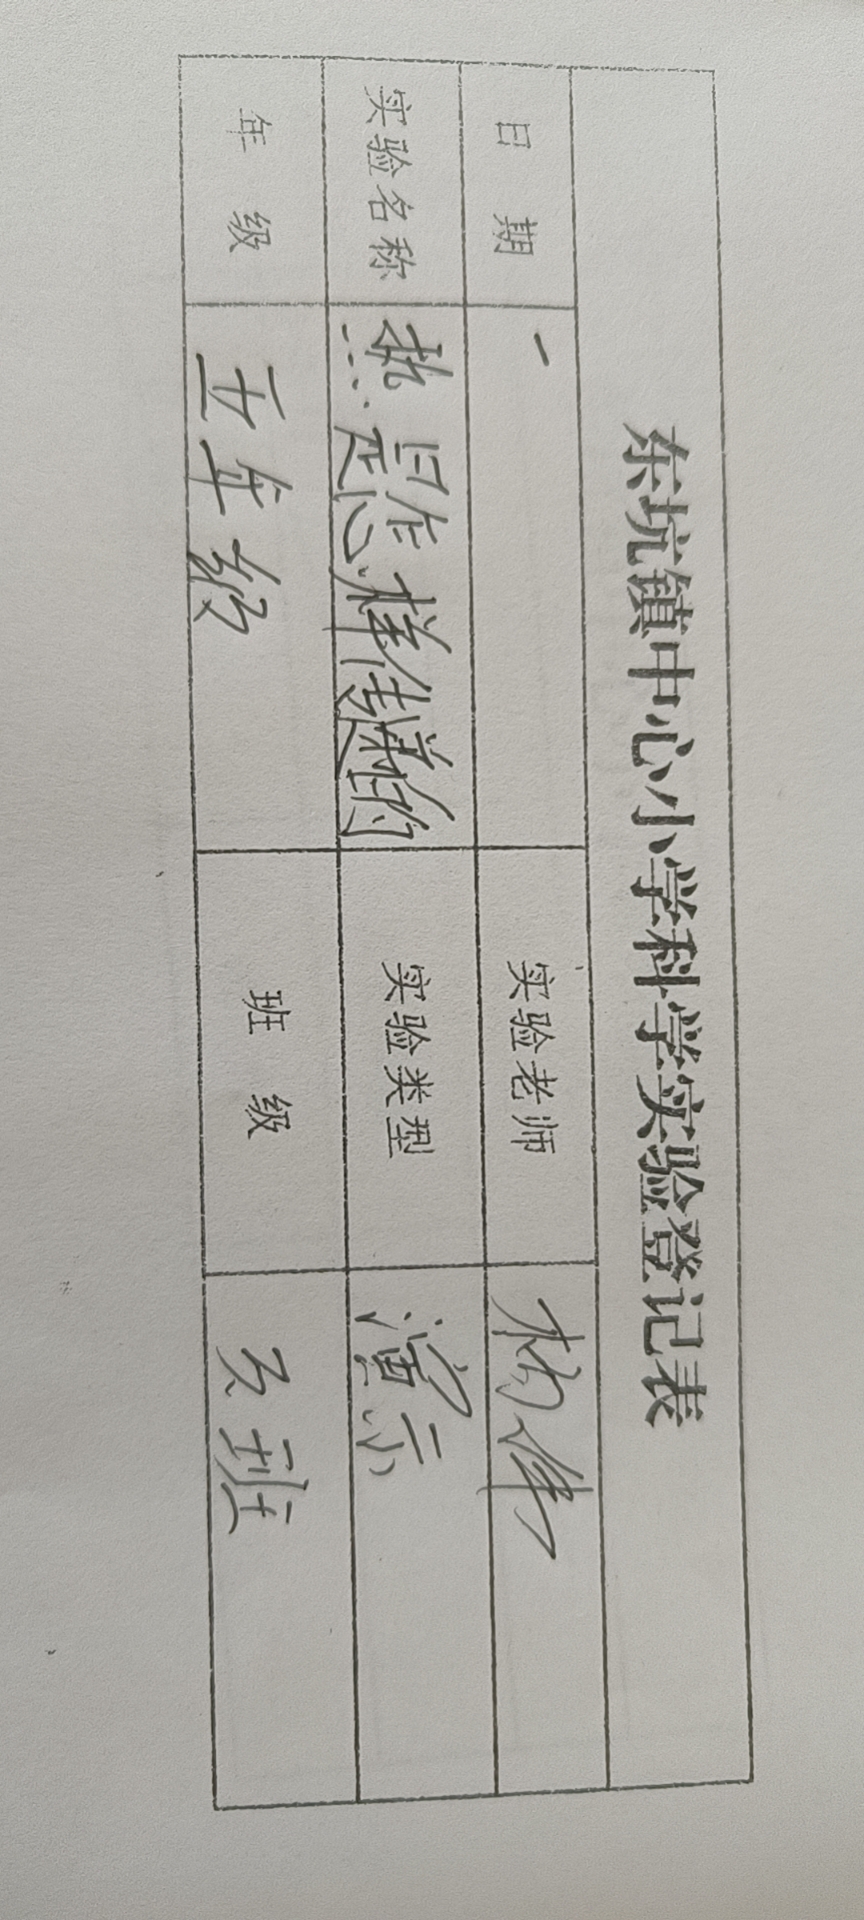 东坑镇中心小学科学实验登记表
日 期 实验老师 杨伟
实验名称 热是怎样传递的 实验类型 演示
年 级 五年级 班 级 五班